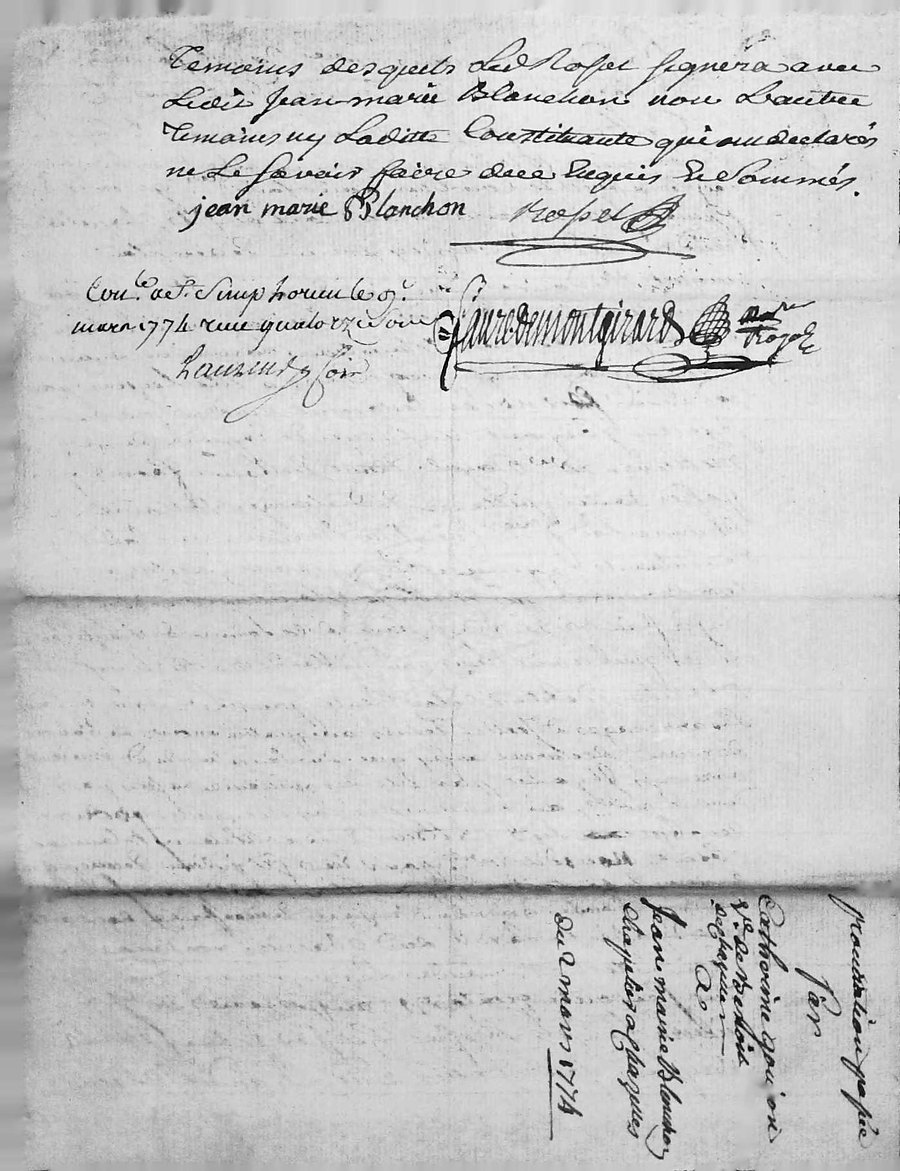 Temoins desquels Led Rosset signera avec
Ledit Jean marie Blanchon non Lautre
Temoins ny Laditte Constituante qui ont declarés
ne Le Savoir faire de ce Enquis Et Sommés.
jean marie Blanchon Rosset
Con.lé a St. Simphorien le 9.e
mars 1774 recu quatorze sous
fauredemontgirard
procuration passée
par
Catherine goujon
V.e de Benoit
a
Jean marie Blanchon
chapelier a Chazelles
du 2 mars 1774